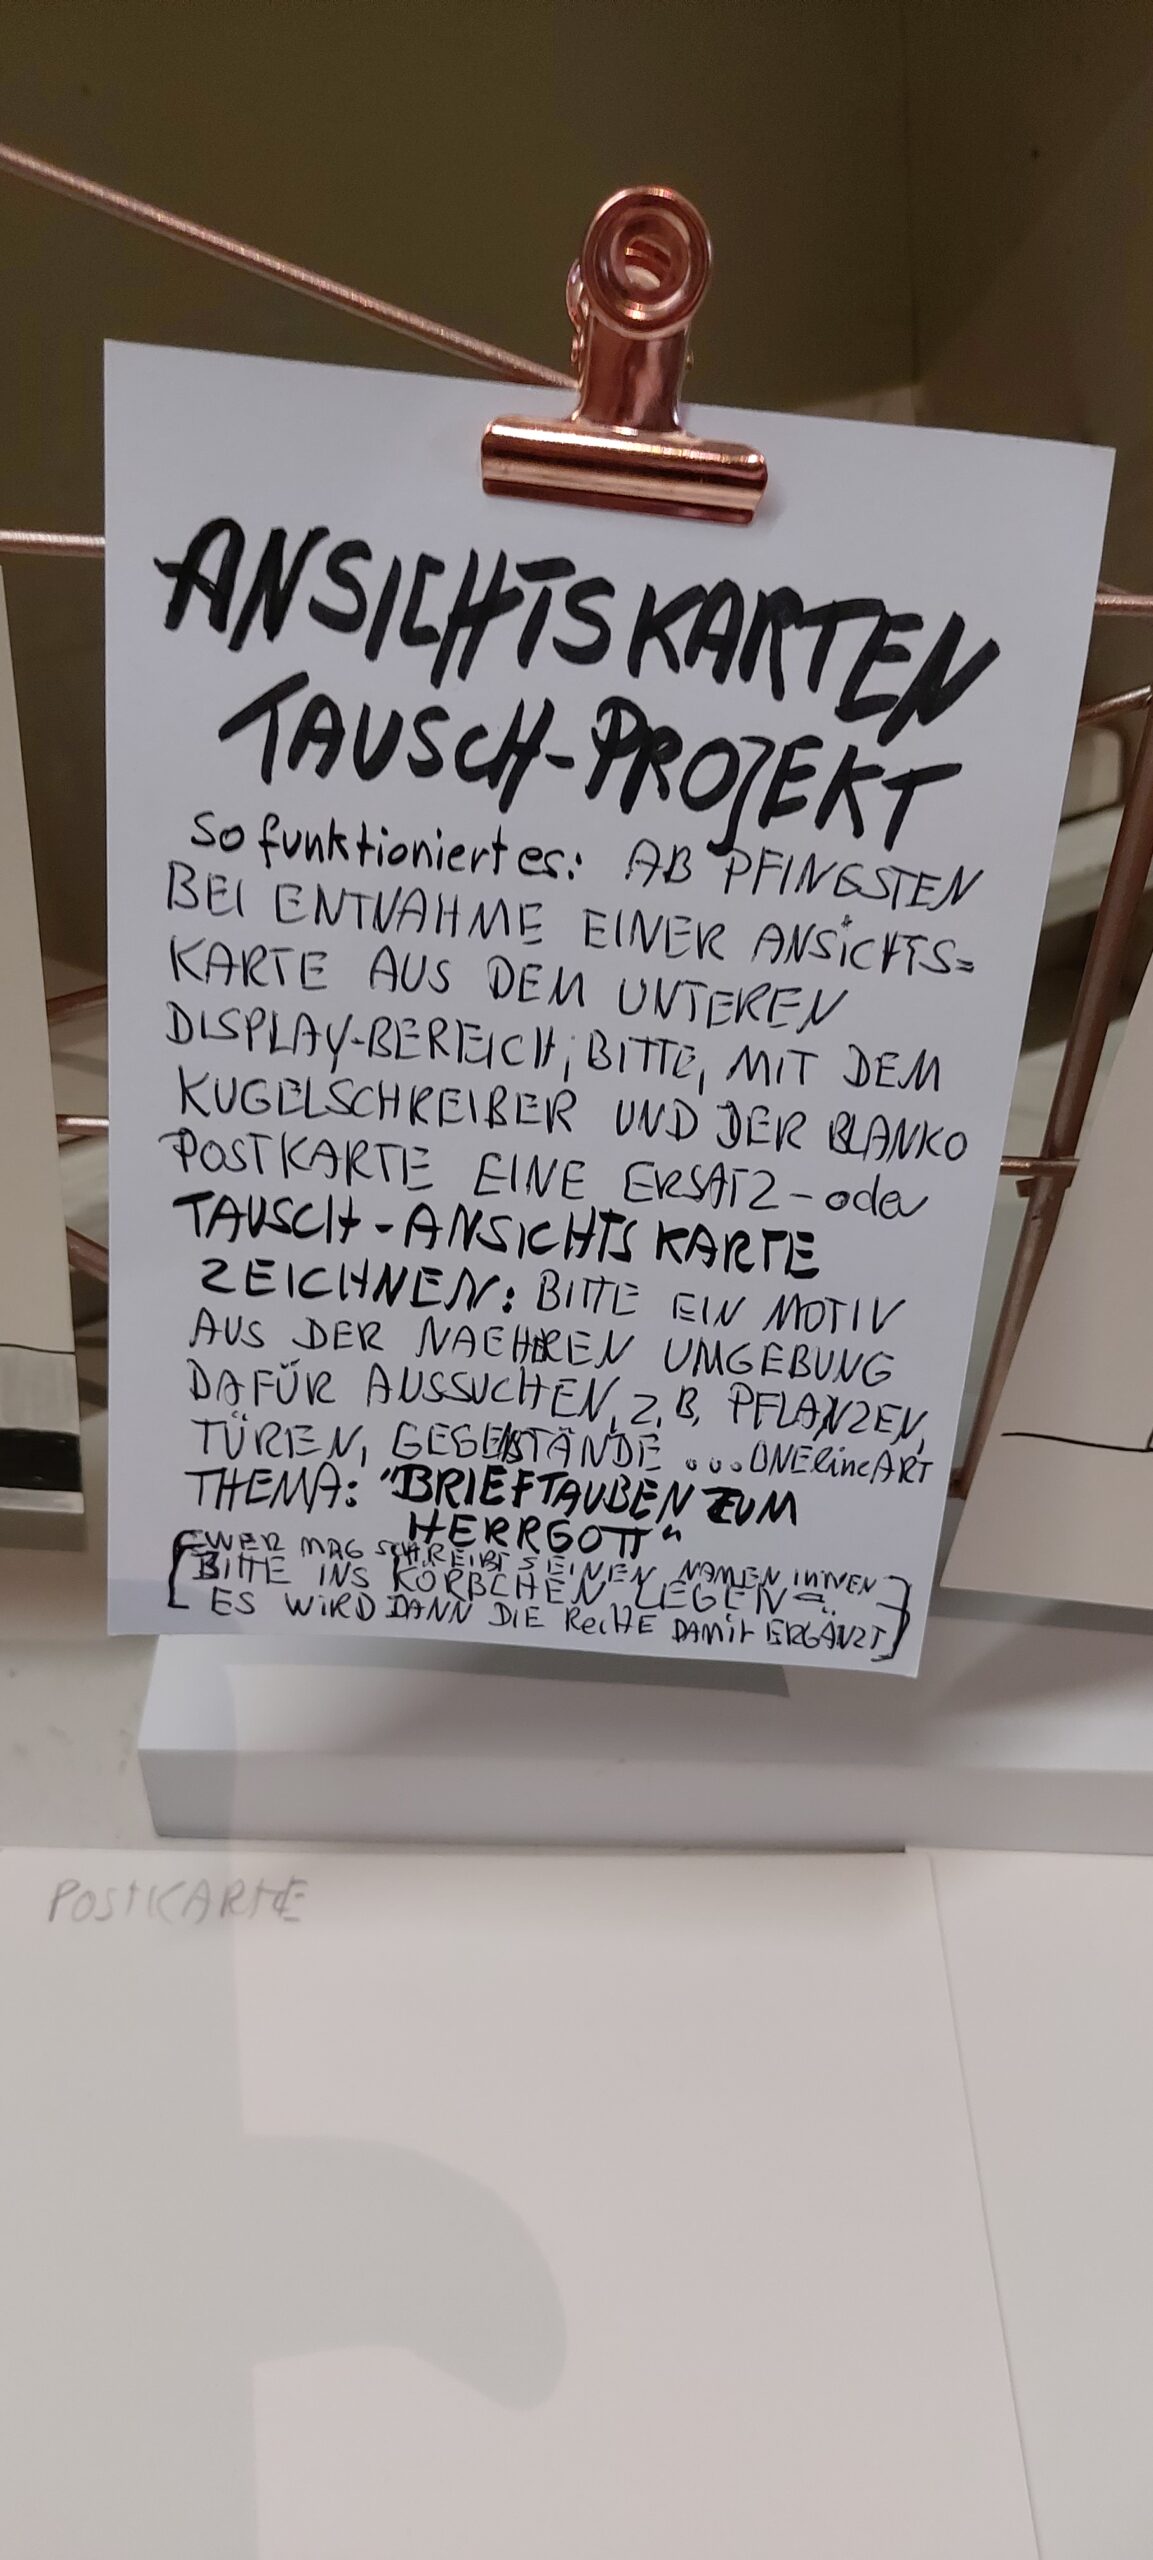 ANSICHTSKARTEN
TAUSCH-PROJEKT
So funktioniert es: AB PFINGSTEN
BEI ENTNAHME EINER ANSICHTS=
KARTE AUS DEM UNTEREN
DISPLAY-BEREICH, BITTE, MIT DEM
KUGELSCHREIBER UND DER BLANKO
POSTKARTE EINE ERSATZ- oder
TAUSCH-ANSICHTSKARTE
ZEICHNEN: BITTE EIN MOTIV
AUS DER NAEHEREN UMGEBUNG
DAFÜR AUSSUCHEN, Z.B. PFLANZEN,
TÜREN, GEGENSTÄNDE ... ONElineART
THEMA: "BRIEFTAUBEN ZUM
HERRGOTT"
WER MAG SCHREIBT SEINEN NAMEN HINTEN
BITTE INS KÖRBCHEN LEGEN
ES WIRD DANN DIE ReiHE DAMit ERGÄNZT
POSTKARTE